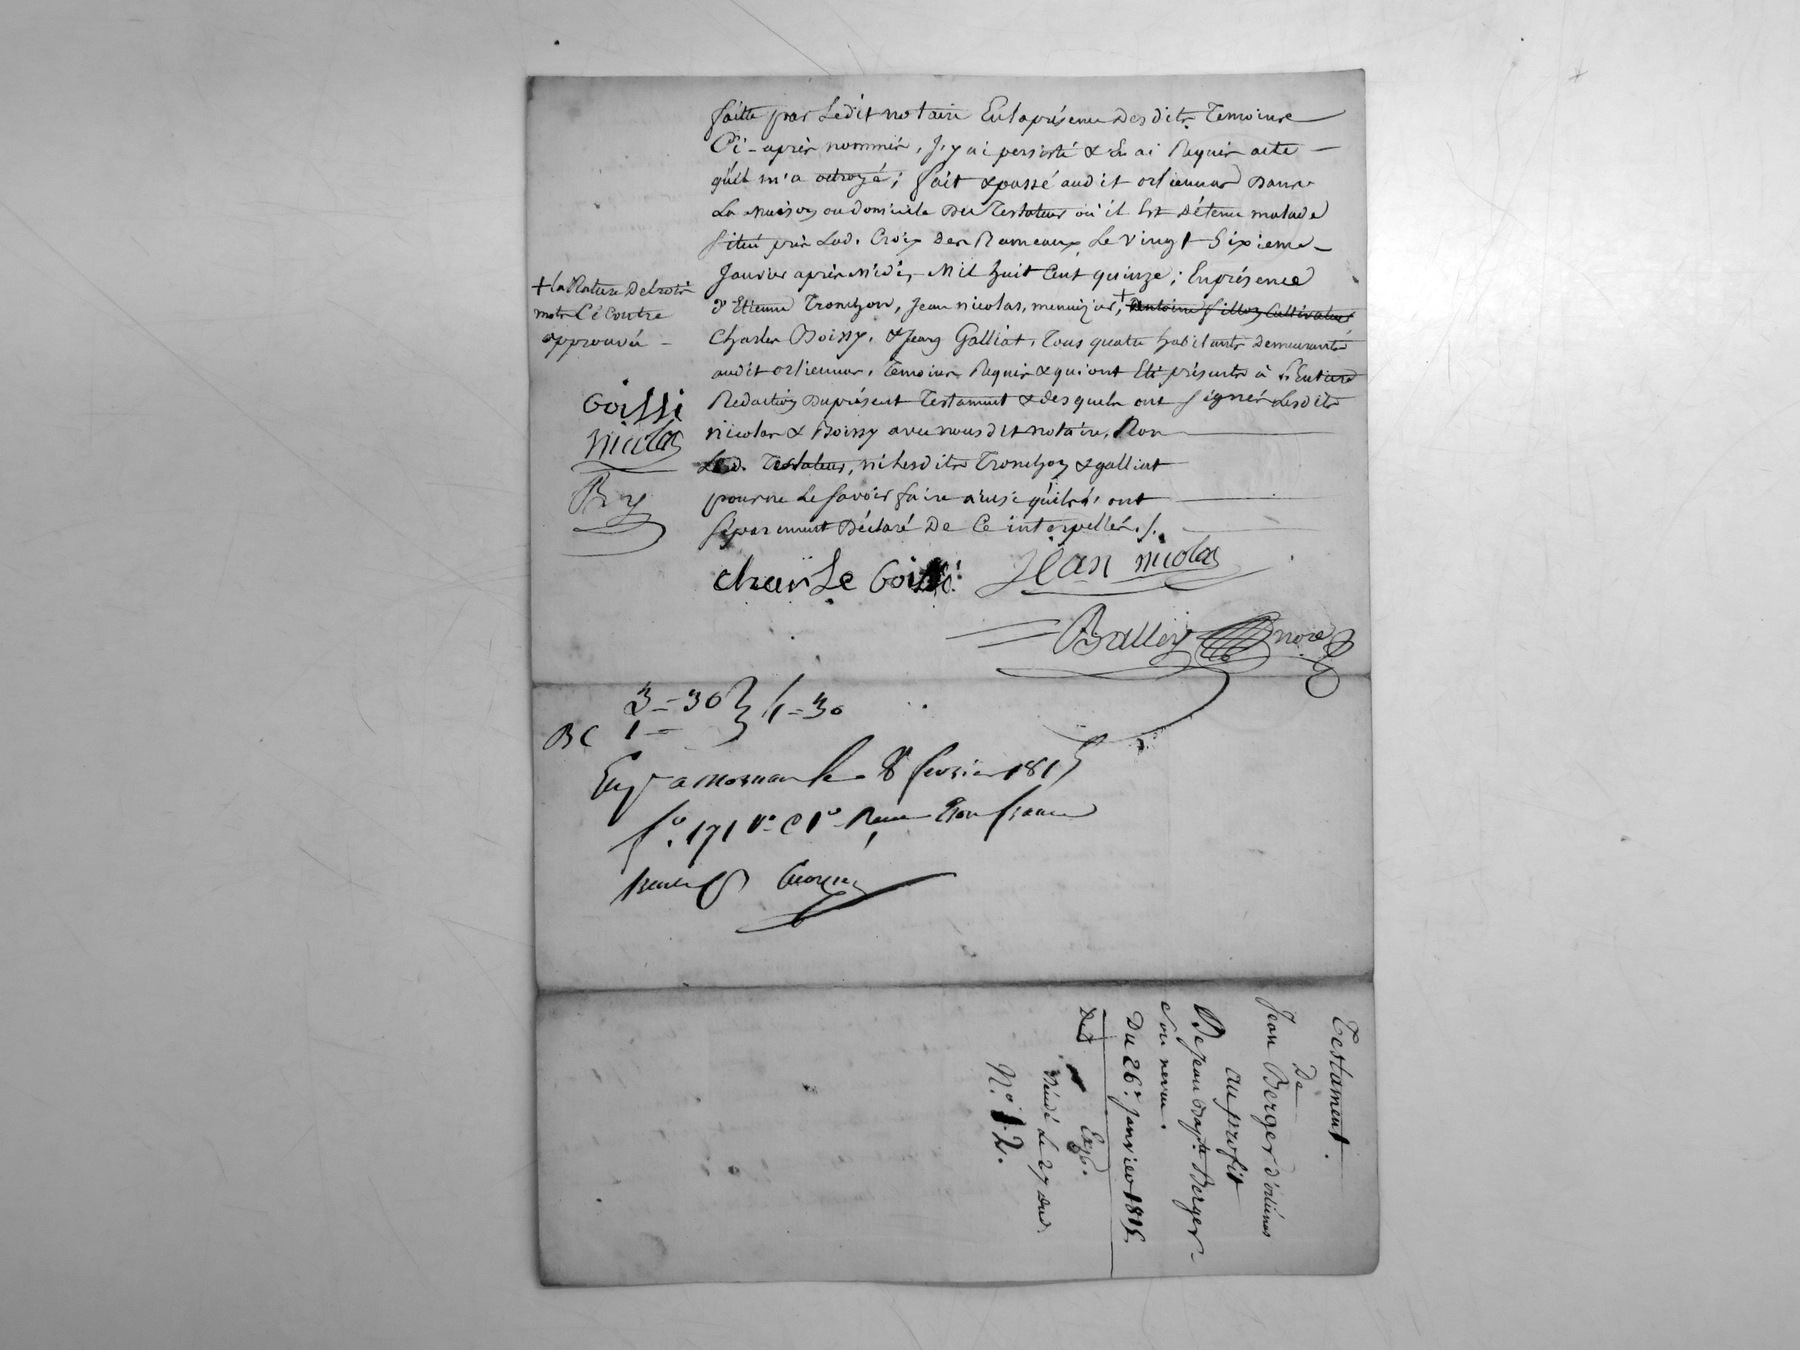 faitte par Ledit notaire En la présence Des dits Temoins
Ci-après nommés, J'y ai persisté & En ai Requis acte —
qu'il m'a octroyé ; fait & passé audit orliennas Dans
La Maison ou domicile Du Testateur où il Est Détenu malade
situé près Lad. Croix Des Rameaux, Le Vingt Sixieme
Janvier après midi, Mil huit Cent quinze ; En présence
d'Etienne Tronchon, Jean nicolas, menuizier, + Antoine fillon Cultivateur
Charles Boissy, & Jean Galliat, Tous quatre habitants Demeurants
audit orliennas, Temoins Requis & qui ont Eté présents à L'Entiere
Redaction Du présent Testament & desquels ont Signés Lesdits
nicolas & Boissy avec nous dit notaire, Non
Led. Testateur, ni Lesdits Tronchon & galliat
pour ne Le Savoir faire ainsi qu'ils l'ont
Séparement Déclaré De Ce interpellés./.
+ La Rature De trois
mots Ci Contre
approuvée —
Goissi
nicolas
By
charle Goissi
Jean nicolas
Balley nore
3 = 30 } 4 = 30
BC 1 =
Eng. a mornan le 8 fevrier 1815
f.o 171 v.o C 1.o Reçu trois francs
Testament.
De
Jean Berger d'orliénas
au profit
De Jean Bapt.e Berger
Son neveu.
Du 26.e Janvier 1815.
Exp.
N.o 12.